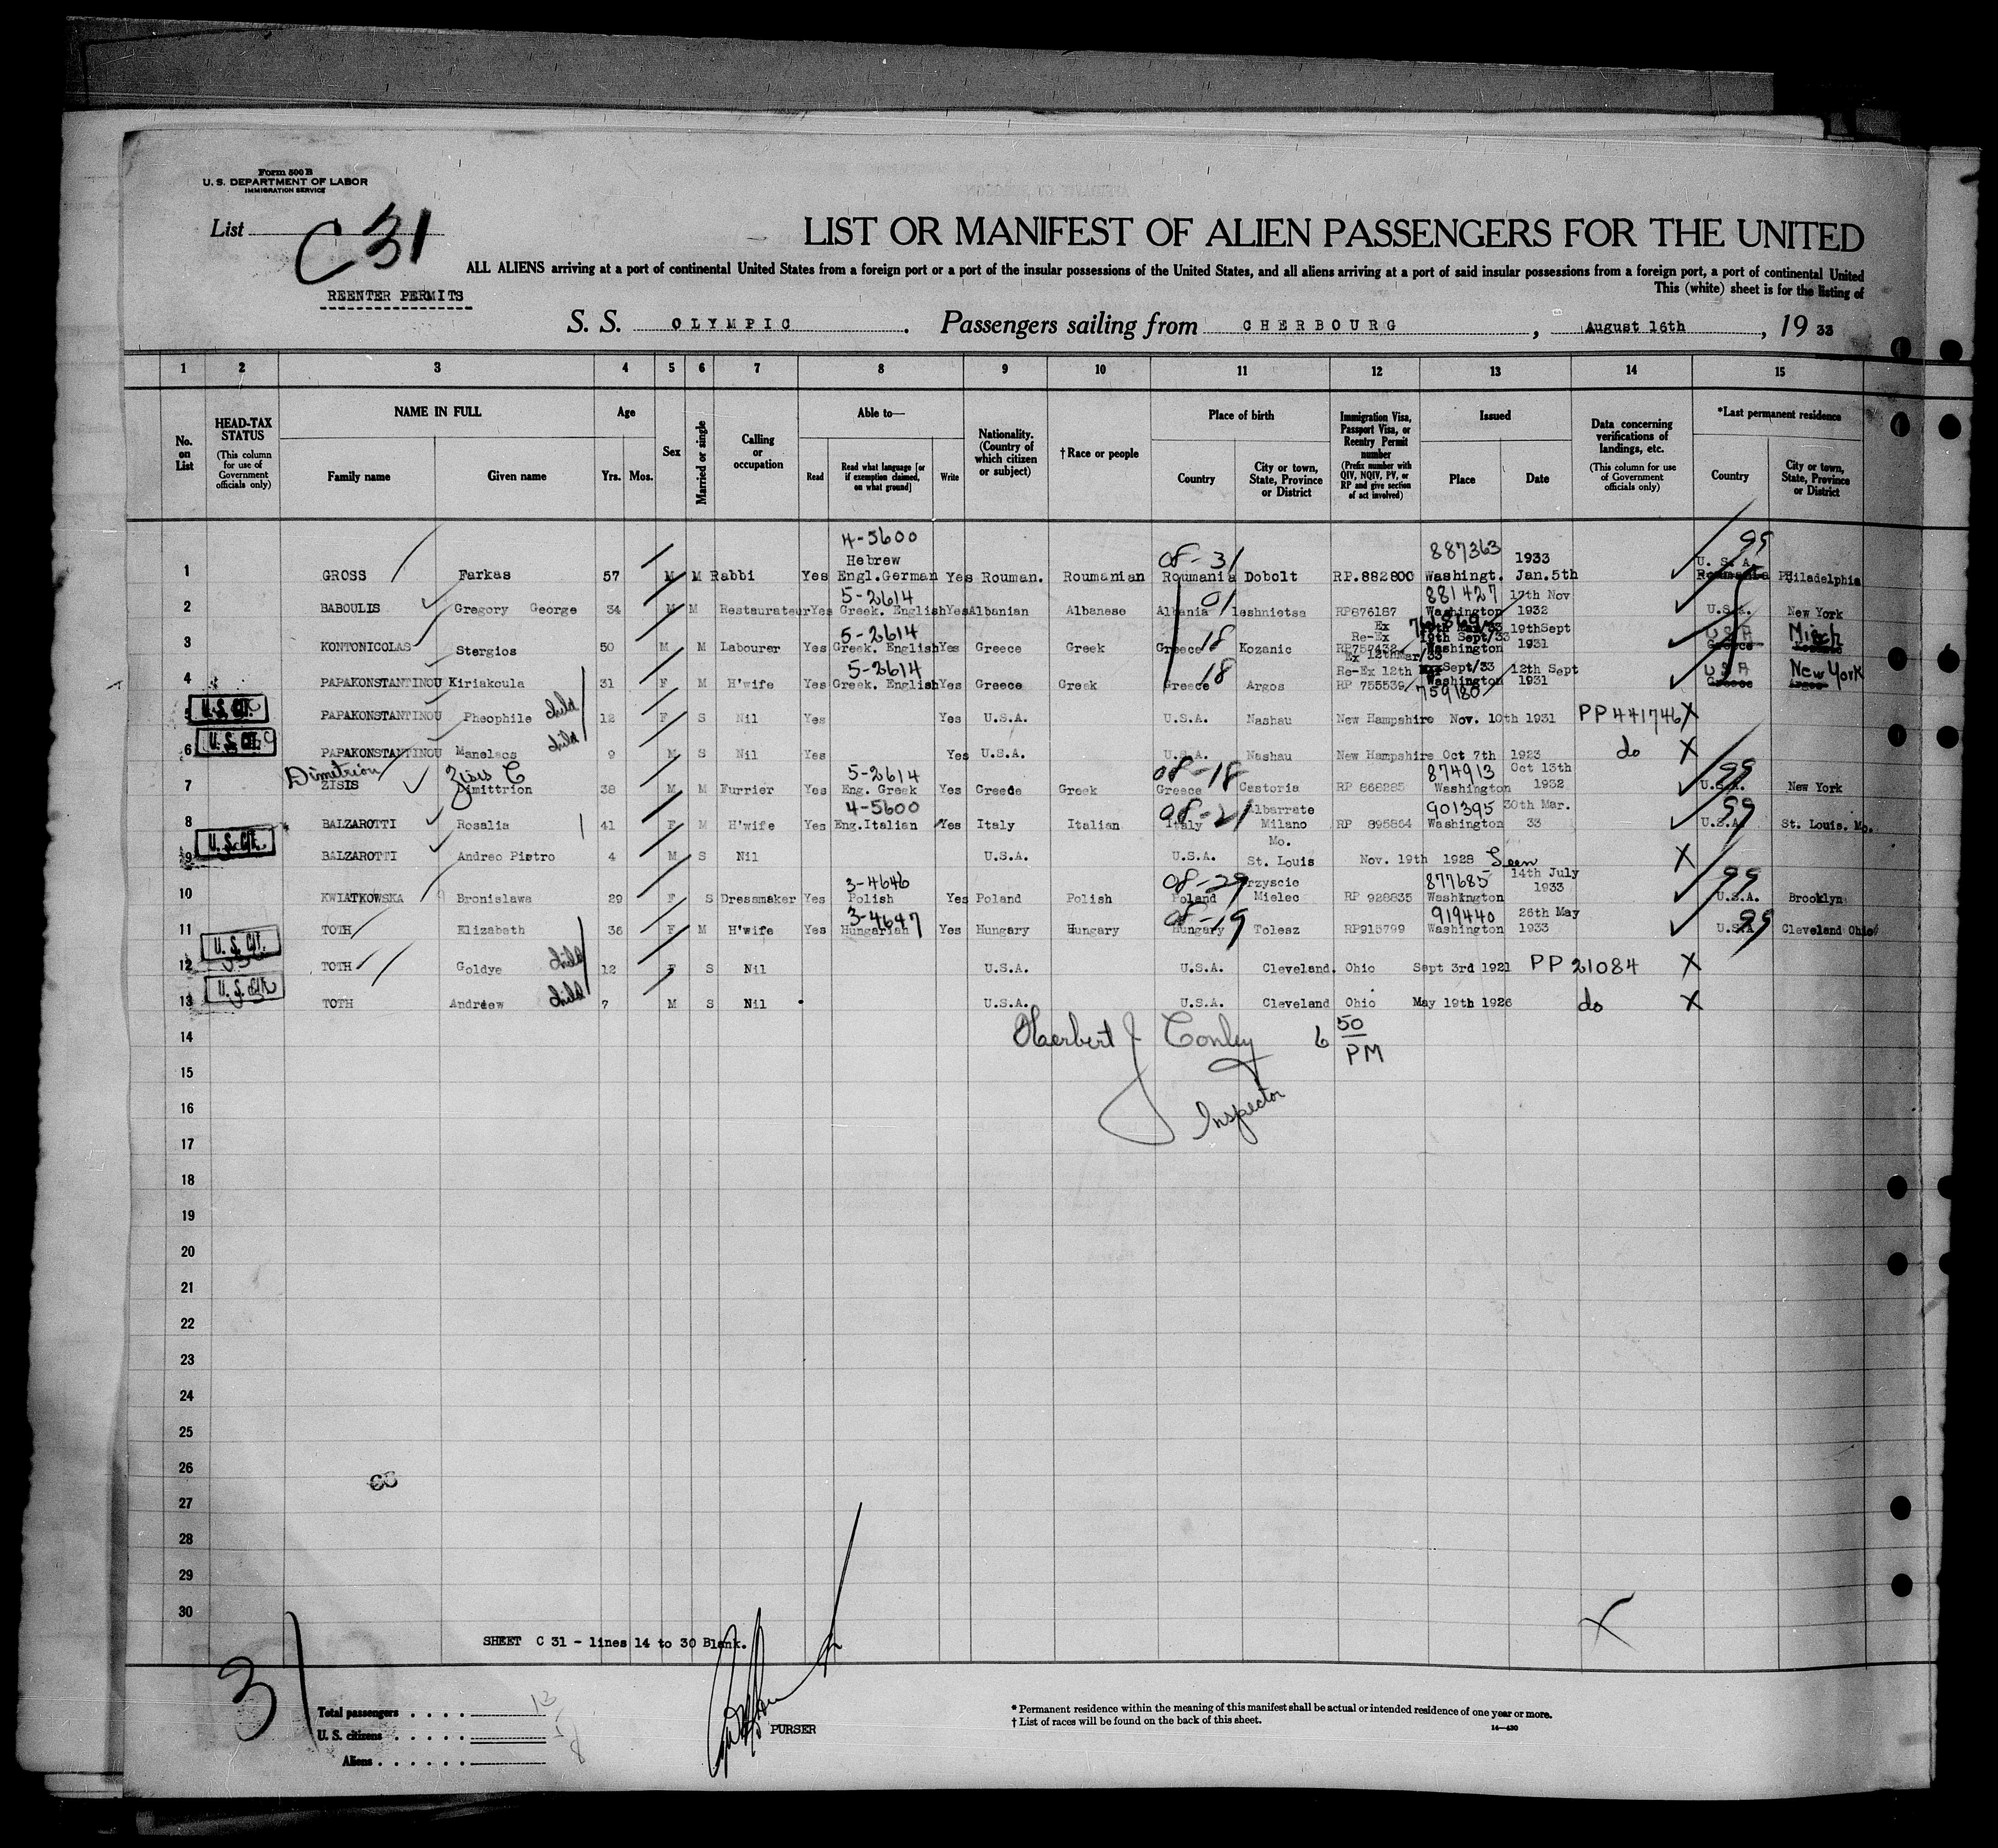 Form 500 B
U. S. DEPARTMENT OF LABOR
IMMIGRATION SERVICE
List C 31
LIST OR MANIFEST OF ALIEN PASSENGERS FOR THE UNITED
ALL ALIENS arriving at a port of continental United States from a foreign port or a port of the insular possessions of the United States, and all aliens arriving at a port of said insular possessions from a foreign port, a port of continental United
This (white) sheet is for the listing of
REENTER PERMITS
S. S. OLYMPIC . Passengers sailing from CHERBOURG , August 16th , 19 33
1 2 3 4 5 6 7 8 9 10 11 12 13 14 15
No. on List
HEAD-TAX STATUS
(This column for use of Government officials only)
NAME IN FULL
Family name Given name
Age
Yrs. Mos.
Sex
Married or single
Calling or occupation
Able to—
Read
Read what language [or if exemption claimed, on what ground]
Write
Nationality. (Country of which citizen or subject)
†Race or people
Place of birth
Country
City or town, State, Province or District
Immigration Visa, Passport Visa, or Reentry Permit number
(Prefix number with QIV, NQIV, PV, or RP and give section of act involved)
Issued
Place Date
Data concerning verifications of landings, etc.
(This column for use of Government officials only)
*Last permanent residence
Country
City or town, State, Province or District
4-5600 887363 99
Hebrew 08-31 1933 U. S. A.
1 GROSS Farkas 57 M M Rabbi Yes Engl.German Yes Rouman. Roumanian Roumania Dobolt RP.882800 Washingt. Jan.5th Roumania Philadelphia
5-2614 01 881427 17th Nov
2 BABOULIS Gregory George 34 M M Restaurateur Yes Greek. English Yes Albanian Albanese Albania leshnietsa RP876187 Washington 1932 U.S.A. New York
5-2614 18 Ex 19thSept
Re-Ex 19th Sept/33 U S A Mich
3 KONTONICOLAS Stergios 50 M M Labourer Yes Greek. English Yes Greece Greek Greece Kozanic RP757432 Washington 1931 Greece
5-2614 18 Ex 12thMar/33
Re-Ex 12th Sept/33 12th Sept U S A New York
4 PAPAKONSTANTINOU Kiriakoula 31 F M H'wife Yes Greek. English Yes Greece Greek Greece Argos RP 755539 Washington 1931 Greece Argos
759180
U.S. CIT.
5 PAPAKONSTANTINOU Pheophile child 12 F S Nil Yes Yes U.S.A. U.S.A. Nashau New Hampshire Nov. 10th 1931 PP 441746 X
U. S. CIT.
6 PAPAKONSTANTINOU Manelaos child 9 M S Nil Yes Yes U.S.A. U.S.A. Nashau New Hampshire Oct 7th 1923 do X
Dimetriou Zisis C 5-2614 08-18 874913 Oct 13th 99
7 ZISIS Dimittrion 38 M M Furrier Yes Eng. Greek Yes Greede Greek Greece Castoria RP 868285 Washington 1932 U.S.A. New York
4-5600 08-21 Albarrate 901395 30th Mar. 99
8 BALZAROTTI Rosalia 41 F M H'wife Yes Eng.Italian Yes Italy Italian Italy Milano RP 895864 Washington 33 U.S.A. St. Louis. Mo.
U. S. CIT.
Mo.
9 BALZAROTTI Andreo Pietro 4 M S Nil U.S.A. U.S.A. St. Louis Nov. 19th 1928 Seen X
3-4646 08-29 rzyscie 877685 14th July 99
10 KWIATKOWSKA Bronislawa 29 F S Dressmaker Yes Polish Yes Poland Polish Poland Mielec RP 928835 Washington 1933 U.S.A. Brooklyn
3-4647 08-19 919440 26th May 99
11 TOTH Elizabeth 36 F M H'wife Yes Hungarian Yes Hungary Hungary Hungary Tolesz RP915799 Washington 1933 U.S.A Cleveland Ohio
U. S. CIT.
12 TOTH Goldye child 12 F S Nil U.S.A. U.S.A. Cleveland. Ohio Sept 3rd 1921 PP 21084 X
U. S. CIT.
13 TOTH Andreew child 7 M S Nil U.S.A. U.S.A. Cleveland Ohio May 19th 1926 do X
14 Herbert J Conley 6 50 PM
15
16 Inspector
17
18
19
20
21
22
23
24
25
26
27
28
29
30
SHEET C 31 - lines 14 to 30 Blank.
31
Total passengers 13
U. S. citizens 5
Aliens 8
PURSER
* Permanent residence within the meaning of this manifest shall be actual or intended residence of one year or more.
† List of races will be found on the back of this sheet.
14—430